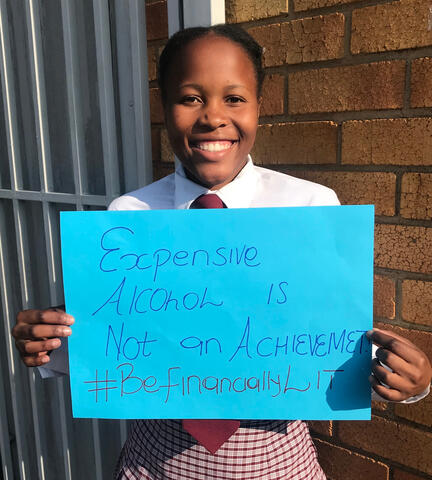 Expensive
Alcohol is
Not an ACHIEVEMET
#BefinanciallyLIT